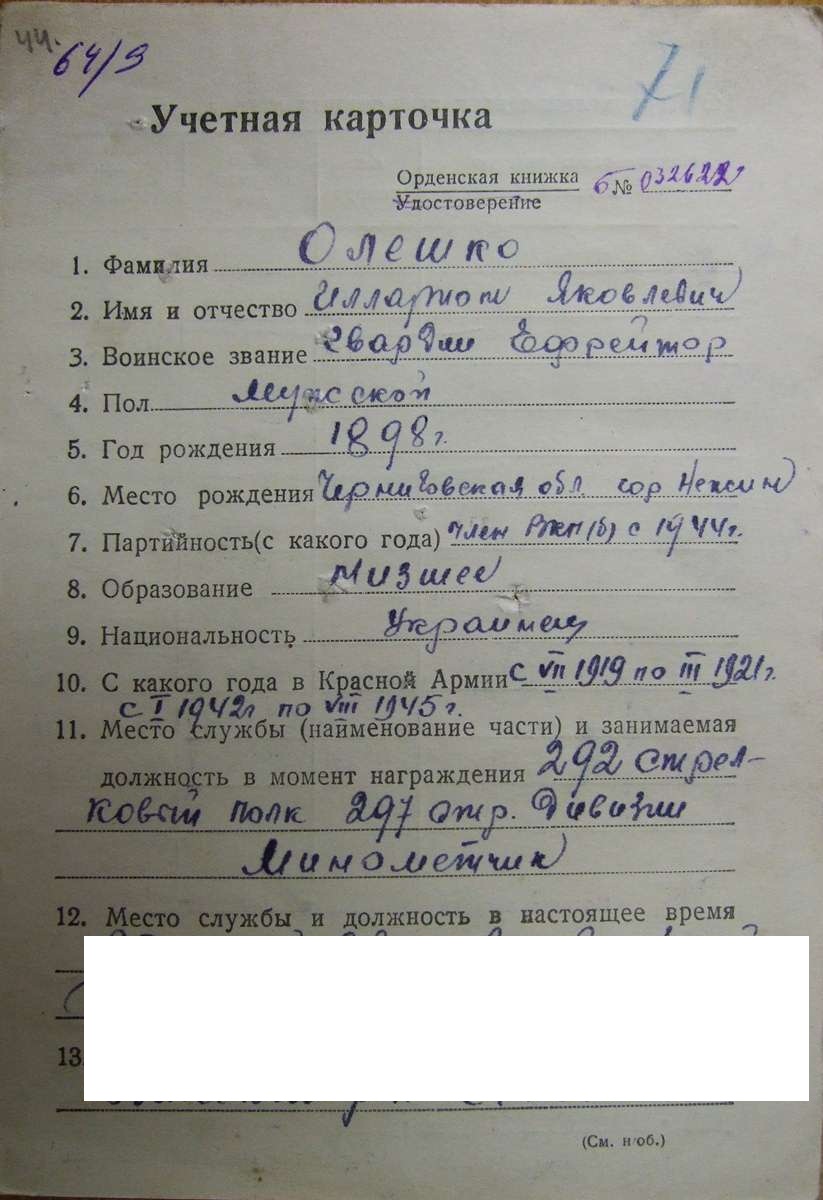 44.
64/9
71
Учетная карточка
Орденская книжка
Удостоверение
Б № 032622
1. Фамилия Олешко
2. Имя и отчество Илларион Яковлевич
3. Воинское звание Гвардии Ефрейтор
4. Пол Мужской
5. Год рождения 1898 г.
6. Место рождения Черниговская обл. гор Нежин
7. Партийность(с какого года) член ВКП(б) с 1944 г.
8. Образование Низшее
9. Национальность Украинец
10. С какого года в Красной Армии с VII 1919 по III 1921 г.
с I 1942 г по VIII 1945 г.
11. Место службы (наименование части) и занимаемая
должность в момент награждения 292 стрел-
ковый полк 297 стр. Дивизии
Минометчик
12. Место службы и должность в настоящее время
13.
(См. н/об.)